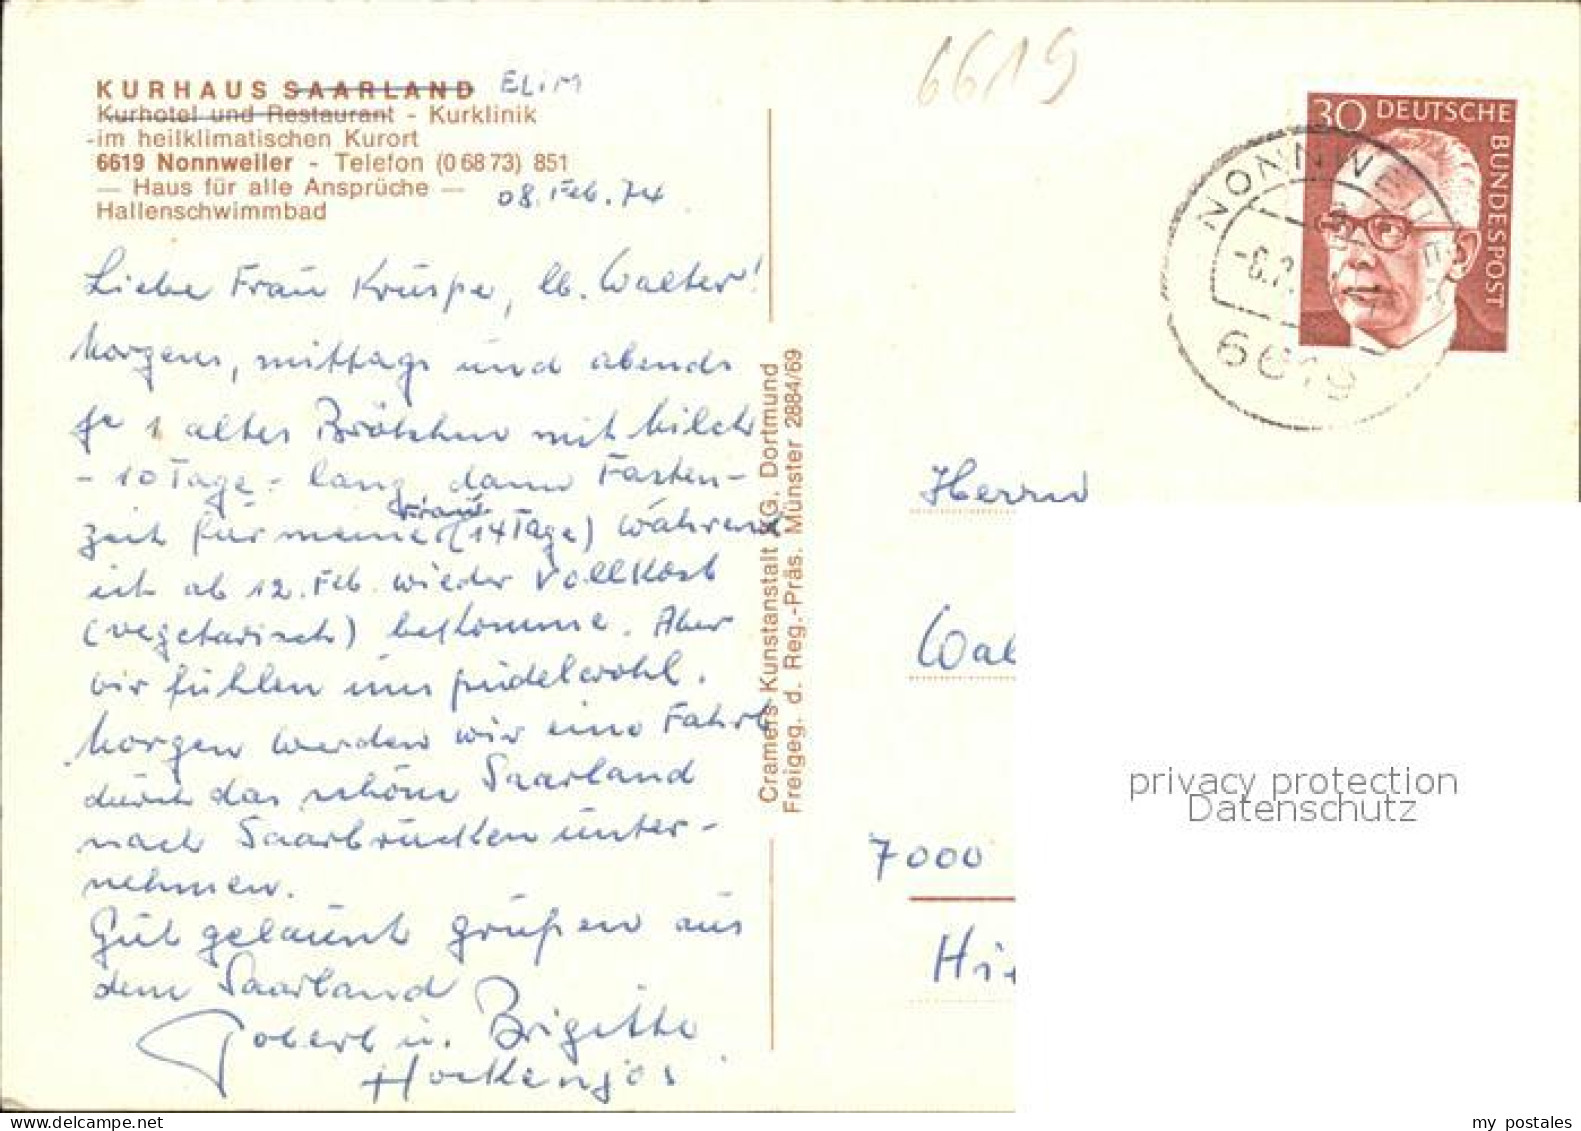 KURHAUS SAARLAND ELIM
Kurhotel und Restaurant - Kurklinik
-im heilklimatischen Kurort
6619 Nonnweiler - Telefon (0 68 73) 851
— Haus für alle Ansprüche —
Hallenschwimmbad
08. Feb. 74
Liebe Frau Kruspe, lb. Walter!
Morgens, mittags und abends
je 1 altes Brötchen mit Milch
- 10 Tage - lang, dann Fasten-
zeit für meine Frau (14 Tage) während
ich ab 12. Feb. wieder Vollkost
(vegetarisch) bekomme. Aber
wir fühlen uns pudelwohl.
Morgen werden wir eine Fahrt
durch das schöne Saarland
nach Saarbrücken unter-
nehmen.
Gut gelaunt grüßen aus
dem Saarland
Robert u. Brigitte
Hockenjos
Cramers Kunstanstalt KG, Dortmund
Freigeg. d. Reg.-Präs. Münster 2884/69
6619
30 DEUTSCHE
BUNDESPOST
NONNWEILER
6619
Herrn
Wal
7000
Hi
privacy protection
Datenschutz
my postales